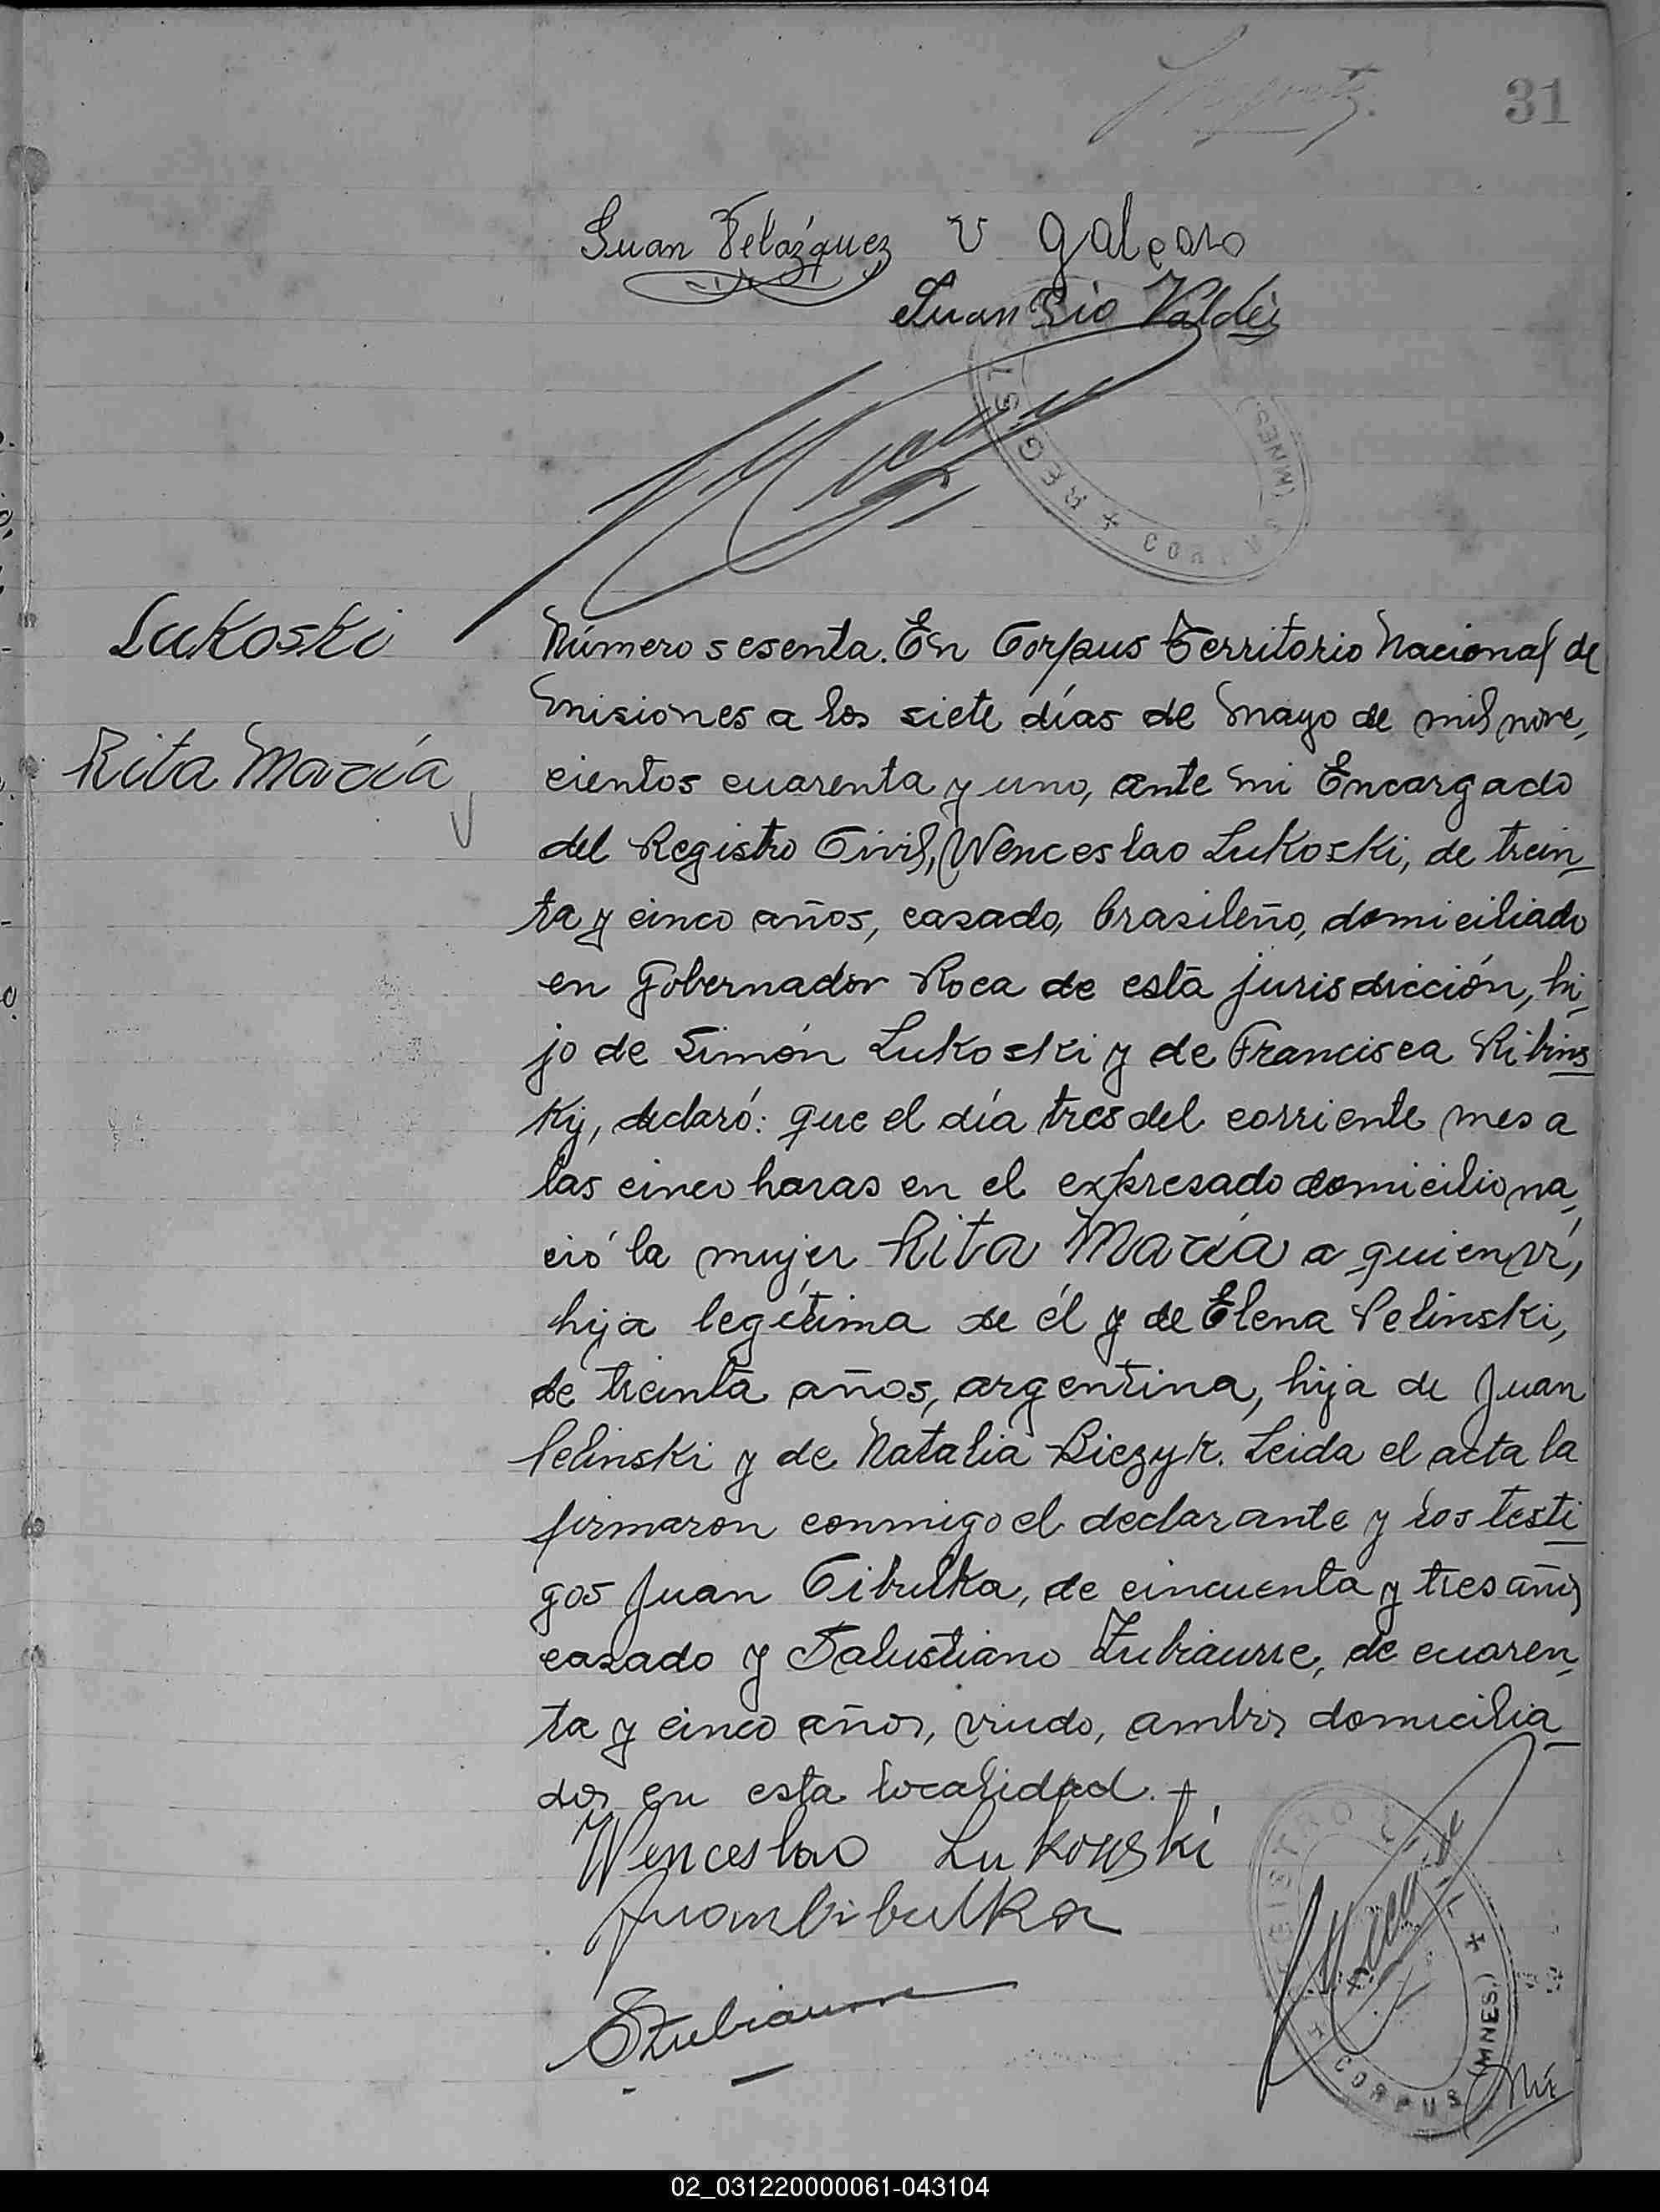 31
Juan Velázquez V Galeano
Juan Pio Valdés
REGIST + CORPUS (MNES)
Lukoski
Rita María
Número sesenta. En Corpus Territorio Nacional de
Misiones a los siete días de Mayo de mil nove,
cientos cuarenta y uno, ante mi Encargado
del Registro Civil, Wenceslao Lukoski, de trein
ta y cinco años, casado, brasileño, domiciliado
en Gobernador Roca de esta jurisdicción, hi,
jo de Simón Lukoski y de Francisca Ribins
Ky, declaró: que el día tres del corriente mes a
las cinco horas en el expresado domicilio na,
ció la mujer Rita María a quien ví,
hija legítima de él y de Elena Pelinski,
de treinta años, argentina, hija de Juan
Pelinski y de Natalia Biezyk. Leida el acta la
firmaron conmigo el declarante y los testi
gos Juan Cibulka, de cincuenta y tres años
casado y Salustiano Zubiaurre, de cuaren,
ta y cinco años, viudo, ambos domicilia
dos en esta localidad.
Wenceslao Lukowski
Juan Cibulka
SZubiaurre
REGISTRO CIVIL + CORPUS (MNES.) +
02_031220000061-043104